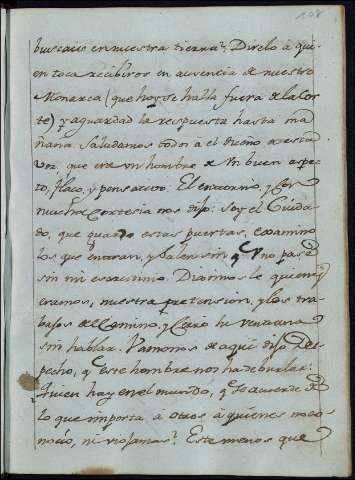 108
buscais en nuestra tierra? Direlo à qui-
en toca recibiros en ausencia de nuestro
Monarca (que hoy se halla fuera de la Cor-
te) y aguardad la respuesta hasta ma-
ñana. Saludamos todos à el dueño de esta
voz, que era un hombre de un buen aspec-
to, flaco, y pensativo. El encogido, y con
mucha cortesia nos dijo: Soy el Cuida-
do, que guardo estas puertas, examino
los que entran, y salen sin q Uno pase
sin mi escrutinio. Diximosle quien
eramos, nuestra pretension, y los tra-
bajos del Camino, y Cerró la ventana
sin hablar. Vamonos de aqui dijo Des-
pecho, q Este hombre nos ha de burlar:
Quien hay en el mundo, q Se acuerde de
lo que importa à otros à quienes no co-
nocio, ni vio jamas? Este menos que